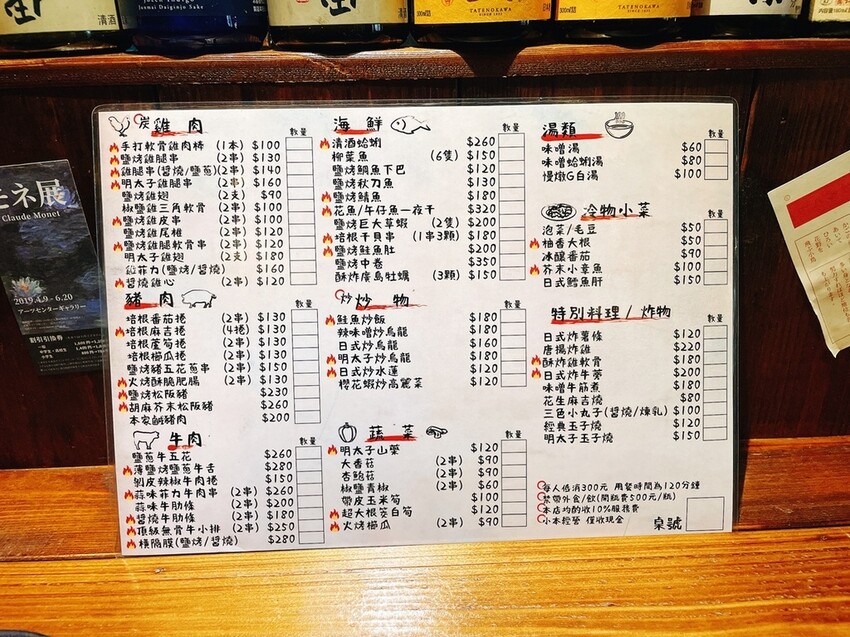 清酒
Joten Indigo
Junmai Daiginjo Sake
300ml詰
TATENOKAWA
SINCE 1832
300ml詰
TATENOKAWA
SINCE 1832
モネ展
Claude Monet
2019.4.9 - 6.20
アーツセンターギャラリー
割引引換券
炭雞肉 數量
手打軟骨雞肉棒 (1本) $100
鹽烤雞腿串 (2串) $130
雞腿串(醬燒/鹽蔥)(2串) $140
明太子雞腿串 (2串) $160
鹽烤雞翅 (2支) $90
椒鹽雞三角軟骨 (2串) $100
鹽烤雞皮串 (2串) $100
鹽烤雞尾椎 (2串) $120
鹽烤雞腿軟骨串 (2串) $120
明太子雞翅 (2支) $180
雞菲力(鹽烤/醬燒) $160
醬燒雞心 (2串) $120
豬肉 數量
培根番茄捲 (2串) $130
培根麻吉捲 (4捲) $130
培根蘆筍捲 (2串) $130
培根櫛瓜捲 (2串) $130
鹽烤豬五花蔥串 (2串) $150
火烤酥脆肥腸 (2串) $130
鹽烤松阪豬 $230
胡麻芥末松阪豬 $260
本家鹹豬肉 $200
牛肉 數量
鹽蔥牛五花 $260
薄鹽烤鹽蔥牛舌 $280
剝皮辣椒牛肉捲 $150
蒜味菲力牛肉串 (2串) $260
蒜味牛肋條 (2串) $200
醬燒牛肋條 (2串) $180
頂級無骨牛小排 (2串) $250
橫隔膜(鹽烤/醬燒) $280
海鮮 數量
清酒蛤蜊 $260
柳葉魚 (6隻) $150
鹽烤鯛魚下巴 $120
鹽烤秋刀魚 $130
鹽烤鯖魚 $180
花魚/午仔魚一夜干 $320
鹽烤巨大草蝦 (2隻) $200
培根干貝串 (1串3顆) $180
鹽烤鮭魚肚 $200
鹽烤中卷 $350
酥炸廣島牡蠣 (3顆) $150
炒炒物 數量
鮭魚炒飯 $180
辣味噌炒烏龍 $180
日式炒烏龍 $160
明太子炒烏龍 $180
日式炒水蓮 $120
櫻花蝦炒高麗菜 $120
蔬菜 數量
明太子山藥 $120
大香菇 (2串) $90
杏鮑菇 (2串) $90
椒鹽青椒 (2串) $60
帶皮玉米筍 $100
超大根筊白筍 $120
火烤櫛瓜 (2串) $90
湯類 數量
味噌湯 $60
味噌蛤蜊湯 $80
慢燉G白湯 $100
冷物小菜 數量
泡菜/毛豆 $50
柚香大根 $50
冰釀番茄 $90
芥末小章魚 $100
日式鱈魚肝 $150
特別料理/炸物
數量
日式炸薯條 $120
唐揚炸雞 $220
酥炸雞軟骨 $180
日式炸牛蒡 $200
味噌牛筋煮 $180
花生麻吉燒 $80
三色小丸子(醬燒/煉乳) $100
經典玉子燒 $120
明太子玉子燒 $150
每人低消300元 用餐時間為120分鐘
禁帶外食/飲(開瓶費500元/瓶)
本店均酌收10%服務費
小本經營 僅收現金
桌號